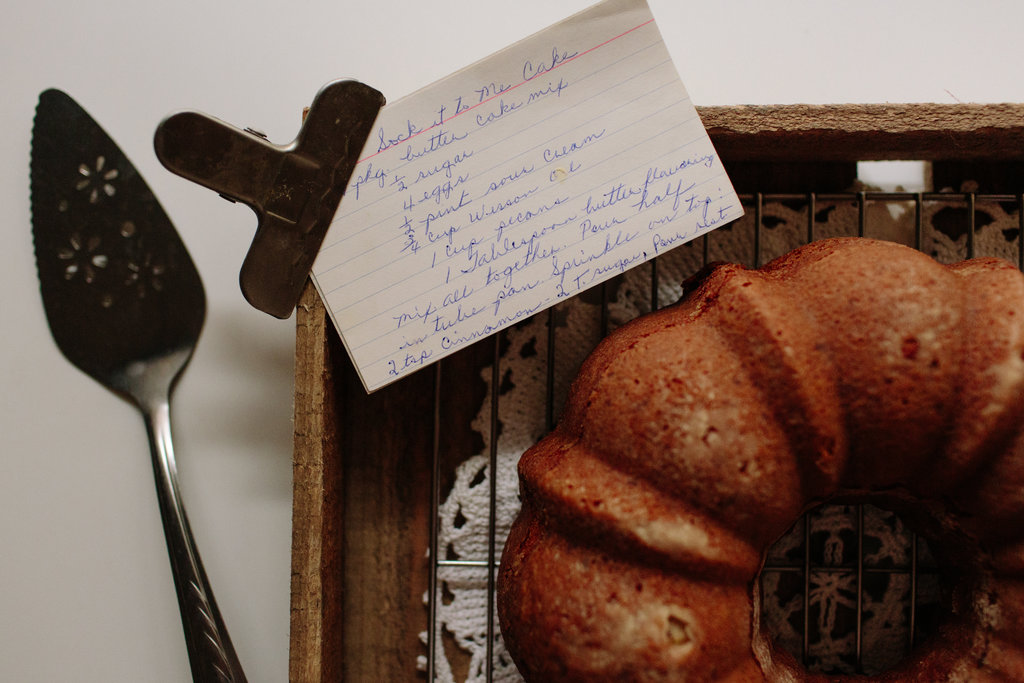 Sock it to Me Cake
pkg. butter cake mix
1/2 sugar
4 eggs
1/2 pint sour cream
3/4 cup Wesson Oil
1 cup pecans
1 Tablespoon butter flavoring
Mix all together. Pour half
in tube pan. Sprinkle on top:
2 tsp Cinnamon - 2 T. sugar, Pour rest